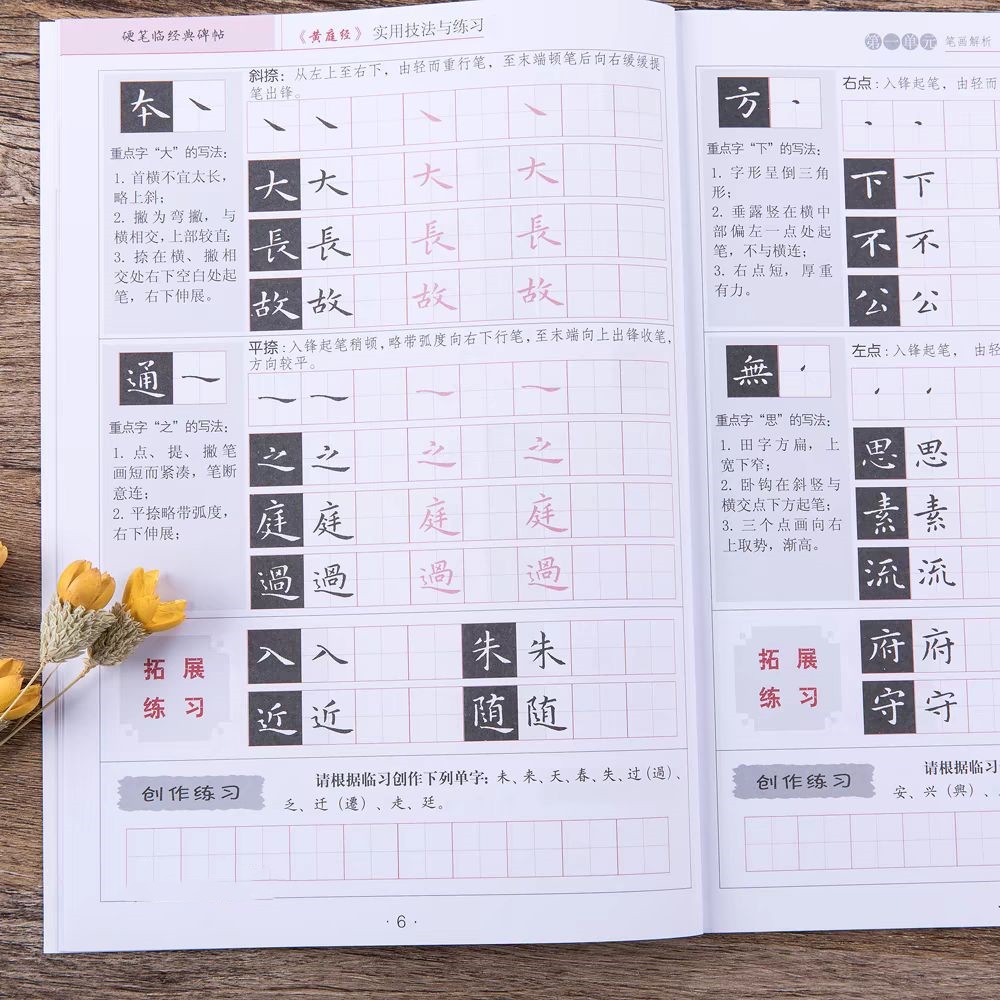 硬笔临经典碑帖
《黄庭经》 实用技法与练习
本
斜捺：从左上至右下，由轻而重行笔，至末端顿笔后向右缓缓提
笔出锋。
重点字“大”的写法：
1. 首横不宜太长，
略上斜；
2. 撇为弯撇，与
横相交，上部较直；
3. 捺在横、撇相
交处右下空白处起
笔，右下伸展。
大 大 大 大
長 長 長 長
故 故 故 故
通
平捺：入锋起笔稍顿，略带弧度向右下行笔，至末端向上出锋收笔，
方向较平。
重点字“之”的写法：
1. 点、提、撇笔
画短而紧凑，笔断
意连；
2. 平捺略带弧度，
右下伸展；
之 之 之 之
庭 庭 庭 庭
過 過 過 過
拓展
练习
入 入 朱 朱
近 近 随 随
创作练习
请根据临习创作下列单字：未、来、天、春、失、过（過）、
乏、迁（遷）、走、廷。
· 6 ·
第一单元 笔画解析
方
右点：入锋起笔，由轻而
重点字“下”的写法：
1. 字形呈倒三角
形；
2. 垂露竖在横中
部偏左一点处起
笔，不与横连；
3. 右点短，厚重
有力。
下 下
不 不
公 公
無
左点：入锋起笔， 由轻
重点字“思”的写法：
1. 田字方扁，上
宽下窄；
2. 卧钩在斜竖与
横交点下方起笔；
3. 三个点画向右
上取势，渐高。
思 思
素 素
流 流
拓展
练习
府 府
守 守
创作练习
请根据临习
安、兴（興）、